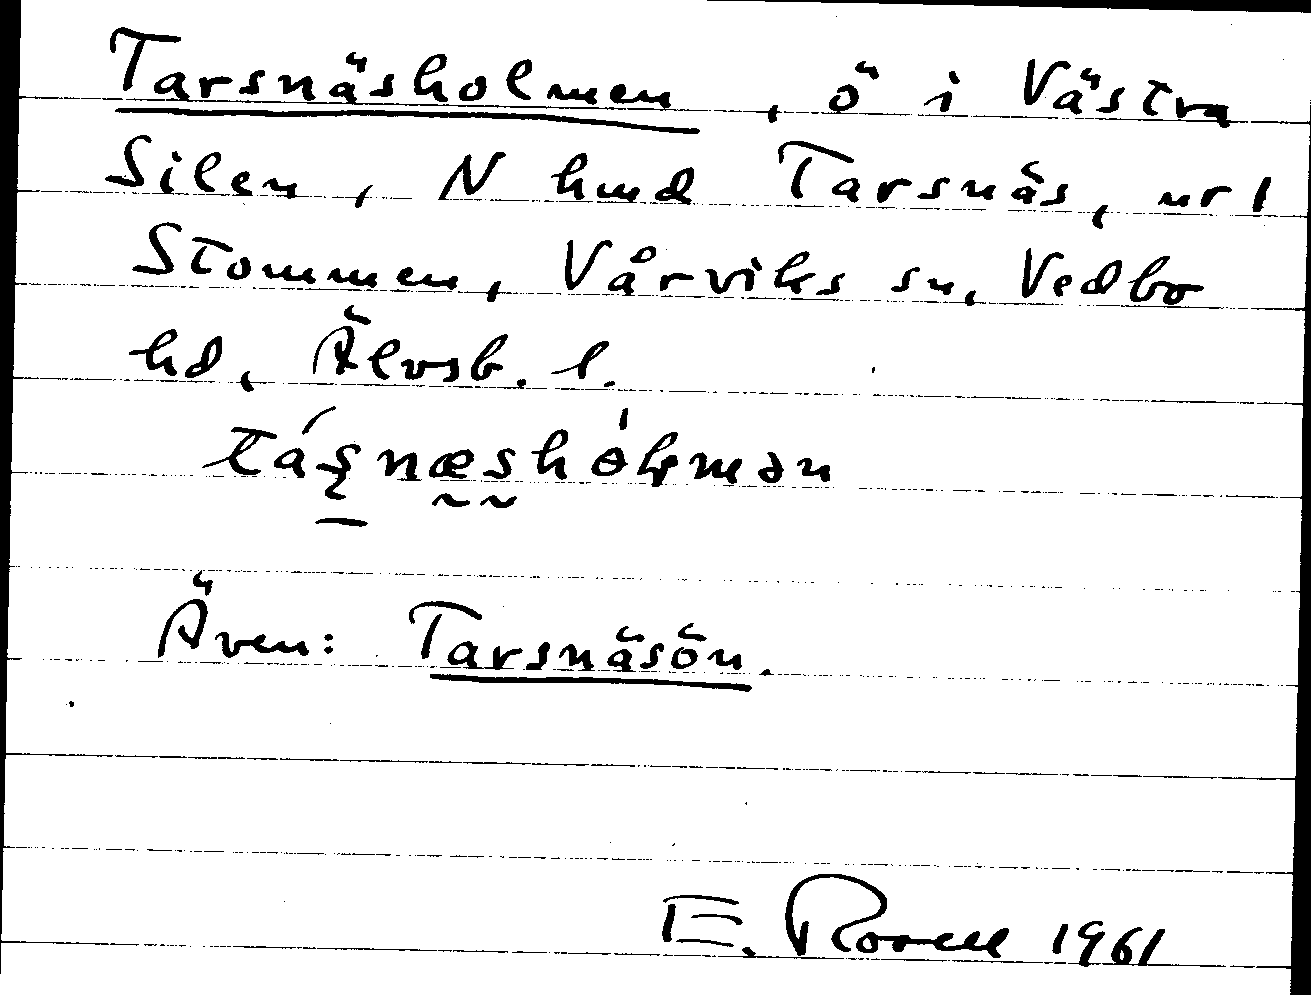 Tarsnäsholmen, ö i Västra
Silen, N hmd Tarsnäs, nr 1
Stommen, Vårviks sn, Vedbo
hd, Älvsb. l.
Även: Tarsnäsön.
E. 1961